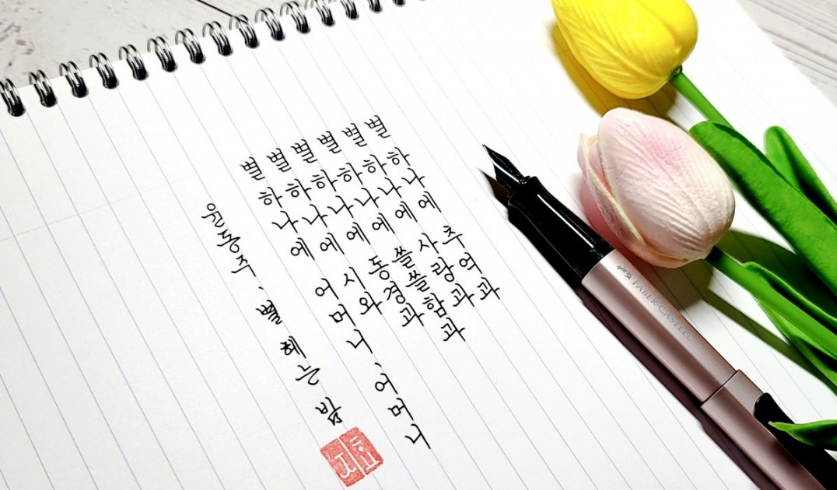 별 하나에 추억과
별 하나에 사랑과
별 하나에 쓸쓸함과
별 하나에 동경과
별 하나에 시와
별 하나에 어머니, 어머니
윤동주, 별 헤는 밤
FABER-CASTELL